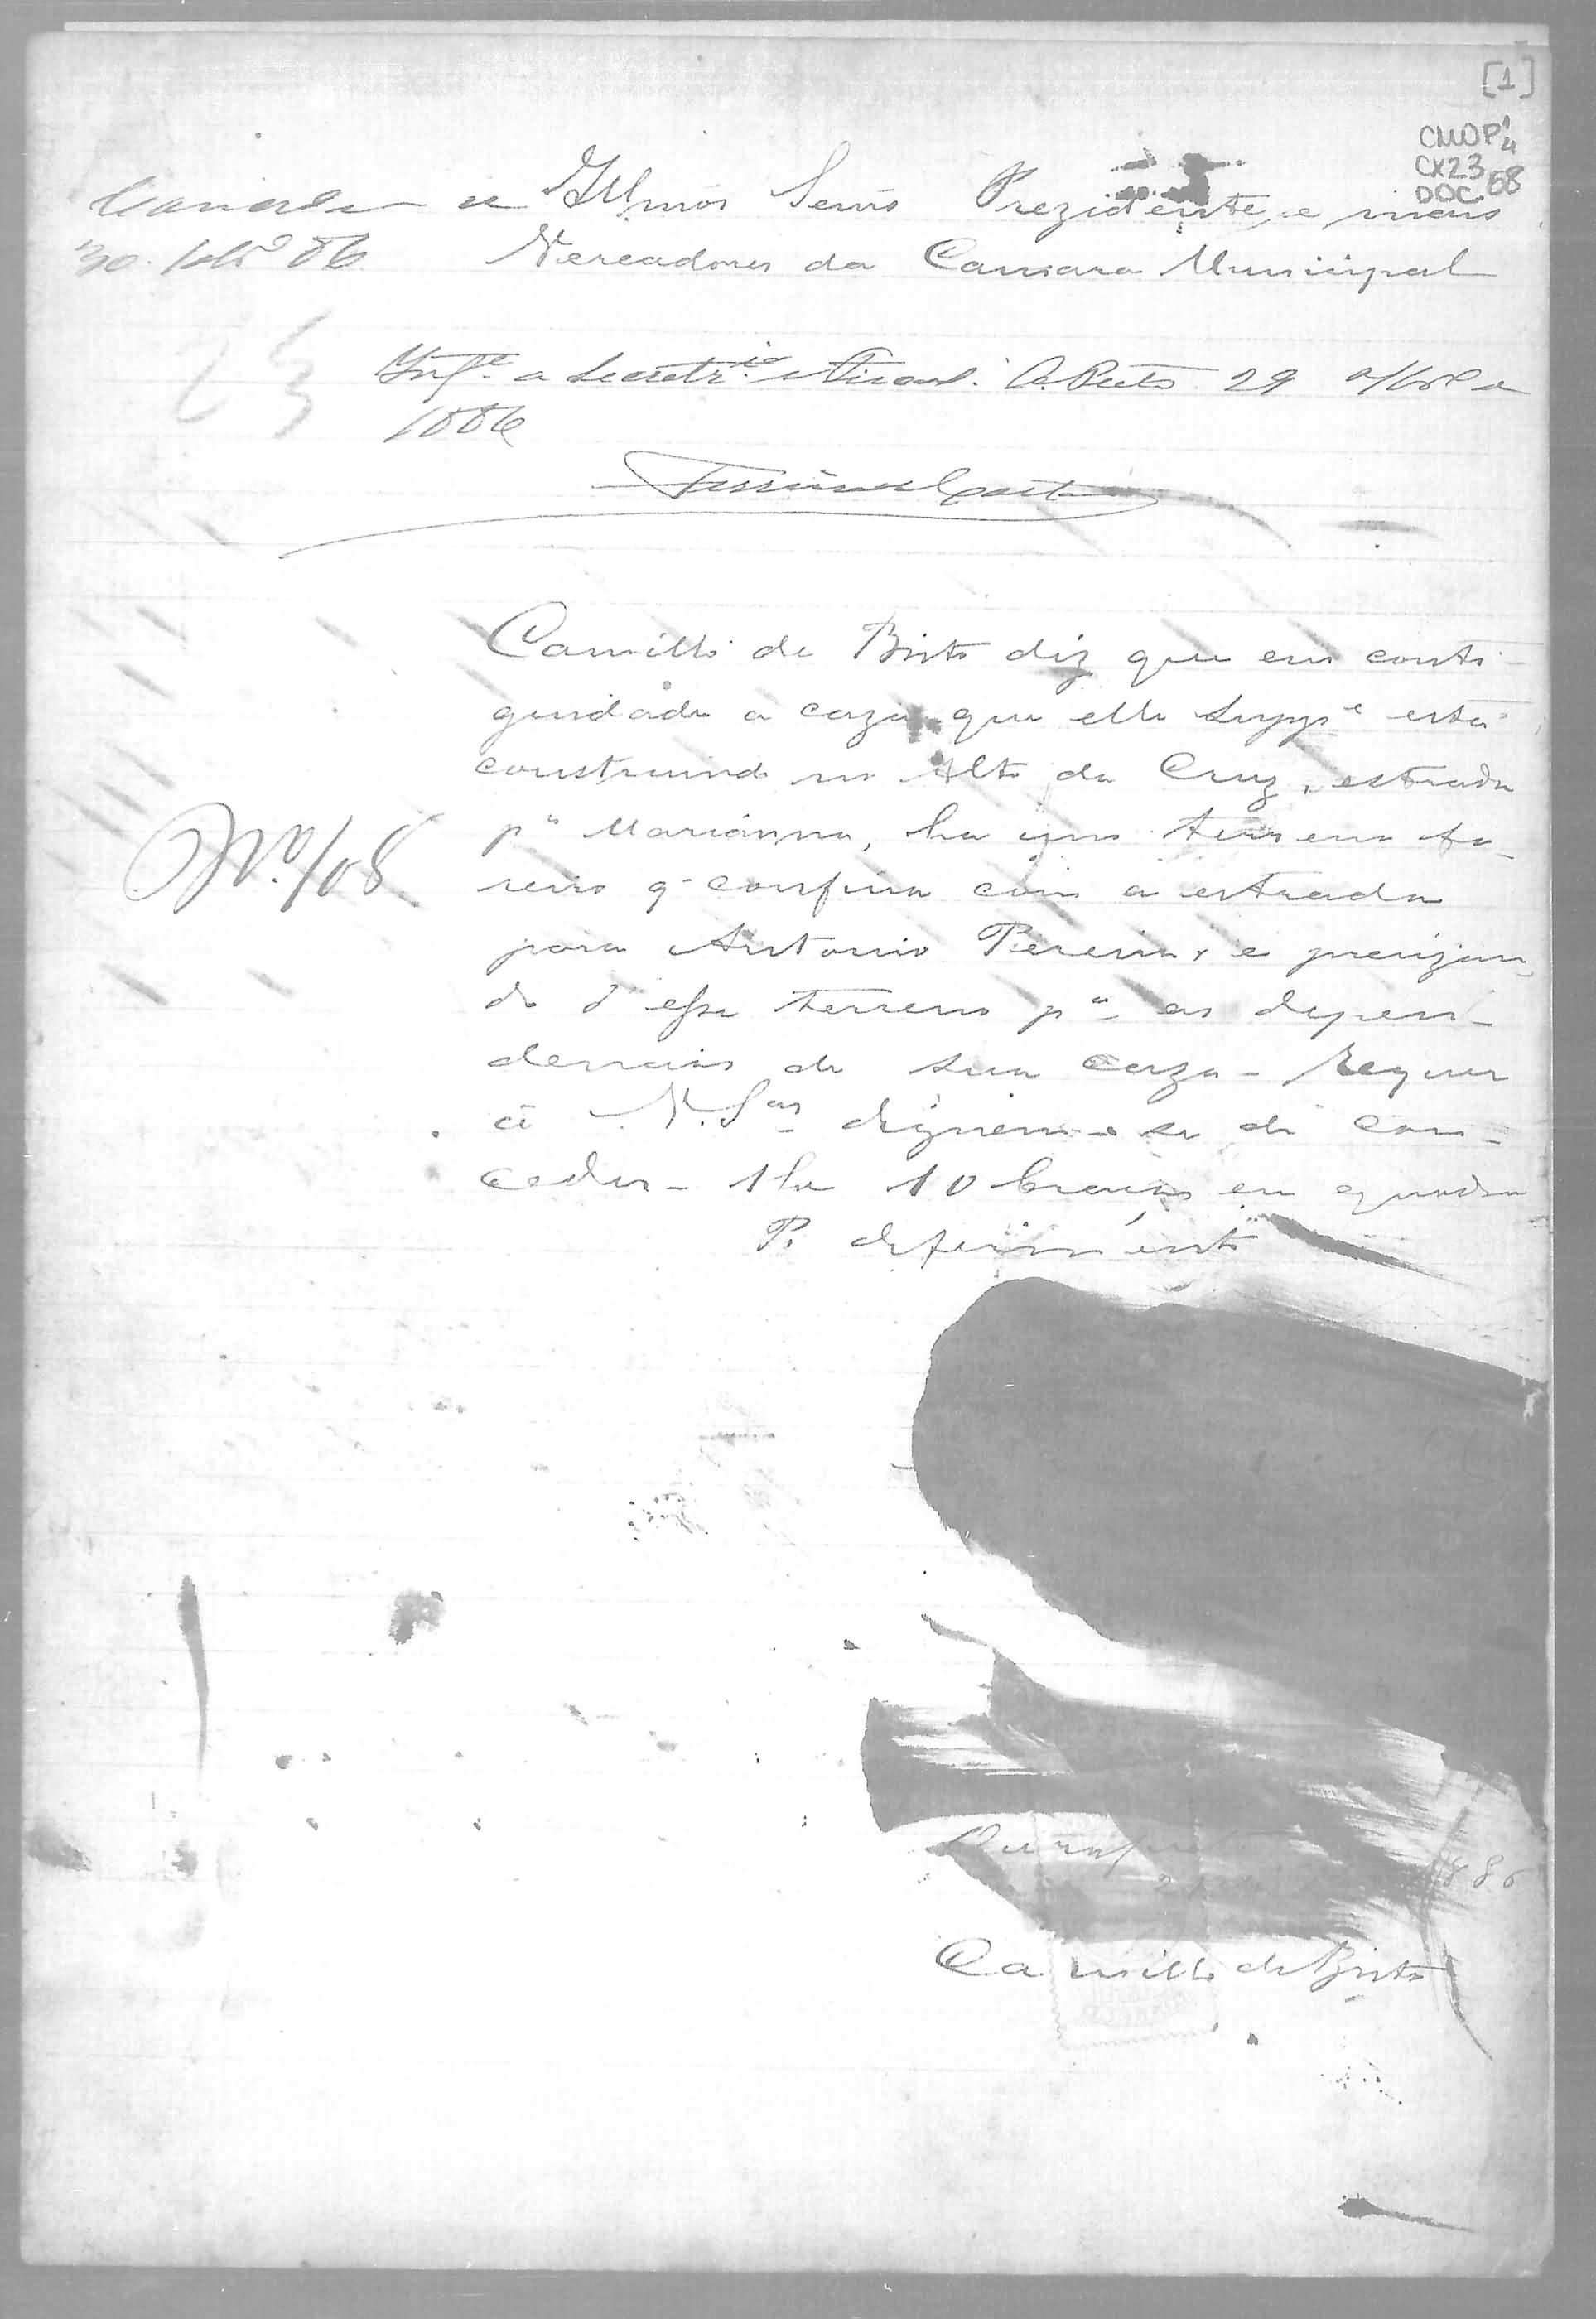 [1]
CMOP
CX23
DOC 68
Illmos Senrs Prezidente e mais
Vereadores da Camara Municipal
30
86
Infe a Secretr.io e Fiscal. O. Preto 29
1886
Camillo de Brito diz que em conti-
guidade a caza que elle Suppe está
construindo no Alto da Cruz, estrada
pa Marianna, ha um terreno fo-
reiro q confina com a estrada
para Antonio Pereira, e precizan-
do d'essa terreno pa as depen-
dencias de sua caza - Requer
á V. Sas dignem-se de con-
ceder-lhe 10 braças em quadra
P. deferimento
Ouro preto
1886
Camillo de Brito